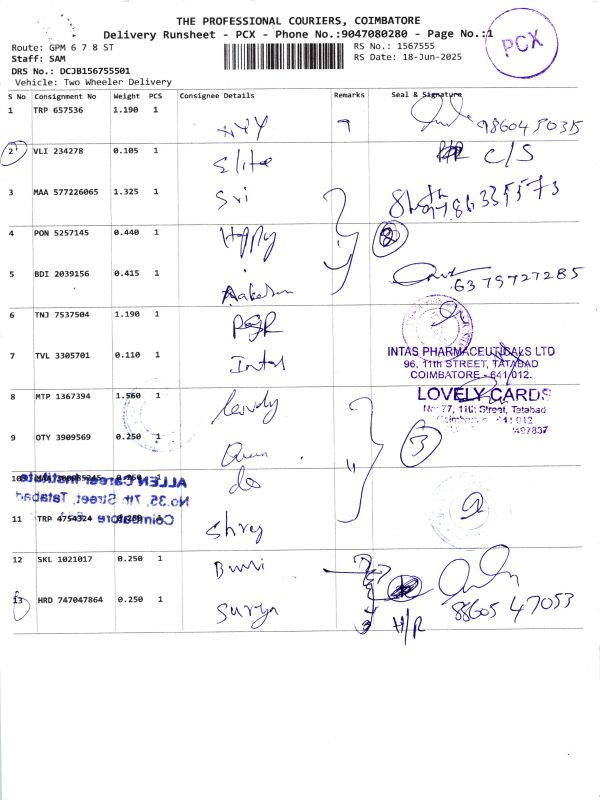 THE PROFESSIONAL COURIERS, COIMBATORE
Delivery Runsheet - PCX - Phone No.:9047080280 - Page No.:1
PCX
Route: GPM 6 7 8 ST
RS No.: 1567555
Staff: SAM
RS Date: 18-Jun-2025
DRS No.: DCJB156755501
Vehicle: Two Wheeler Delivery
S No Consignment No Weight PCS Consignee Details Remarks Seal & Signature
1 TRP 657536 1.190 1 XYY
2 VLI 234278 0.105 1 Elite C/S
3 MAA 577226065 1.325 1 Sri
4 PON 5257145 0.440 1 Happy
5 BDI 2039156 0.415 1 6379727285
6 TNJ 7537504 1.190 1 PSGR
7 TVL 3305701 0.110 1 Intas
INTAS PHARMACEUTICALS LTD
96, 11th STREET, TATABAD
COIMBATORE - 641 012.
8 MTP 1367394 1.560 1 Lovely
LOVELY CARDS
No: 77, 11th Street, Tatabad
497837
9 OTY 3909569 0.250 1 Queen 3
10 do
ALLEN Career Institute
No.35, 7th Street, Tatabad
Coimbatore
11 TRP 4754324 1 Shrey
12 SKL 1021017 0.250 1
13 HRD 747047864 0.250 1 Surya H/R 88605 47053